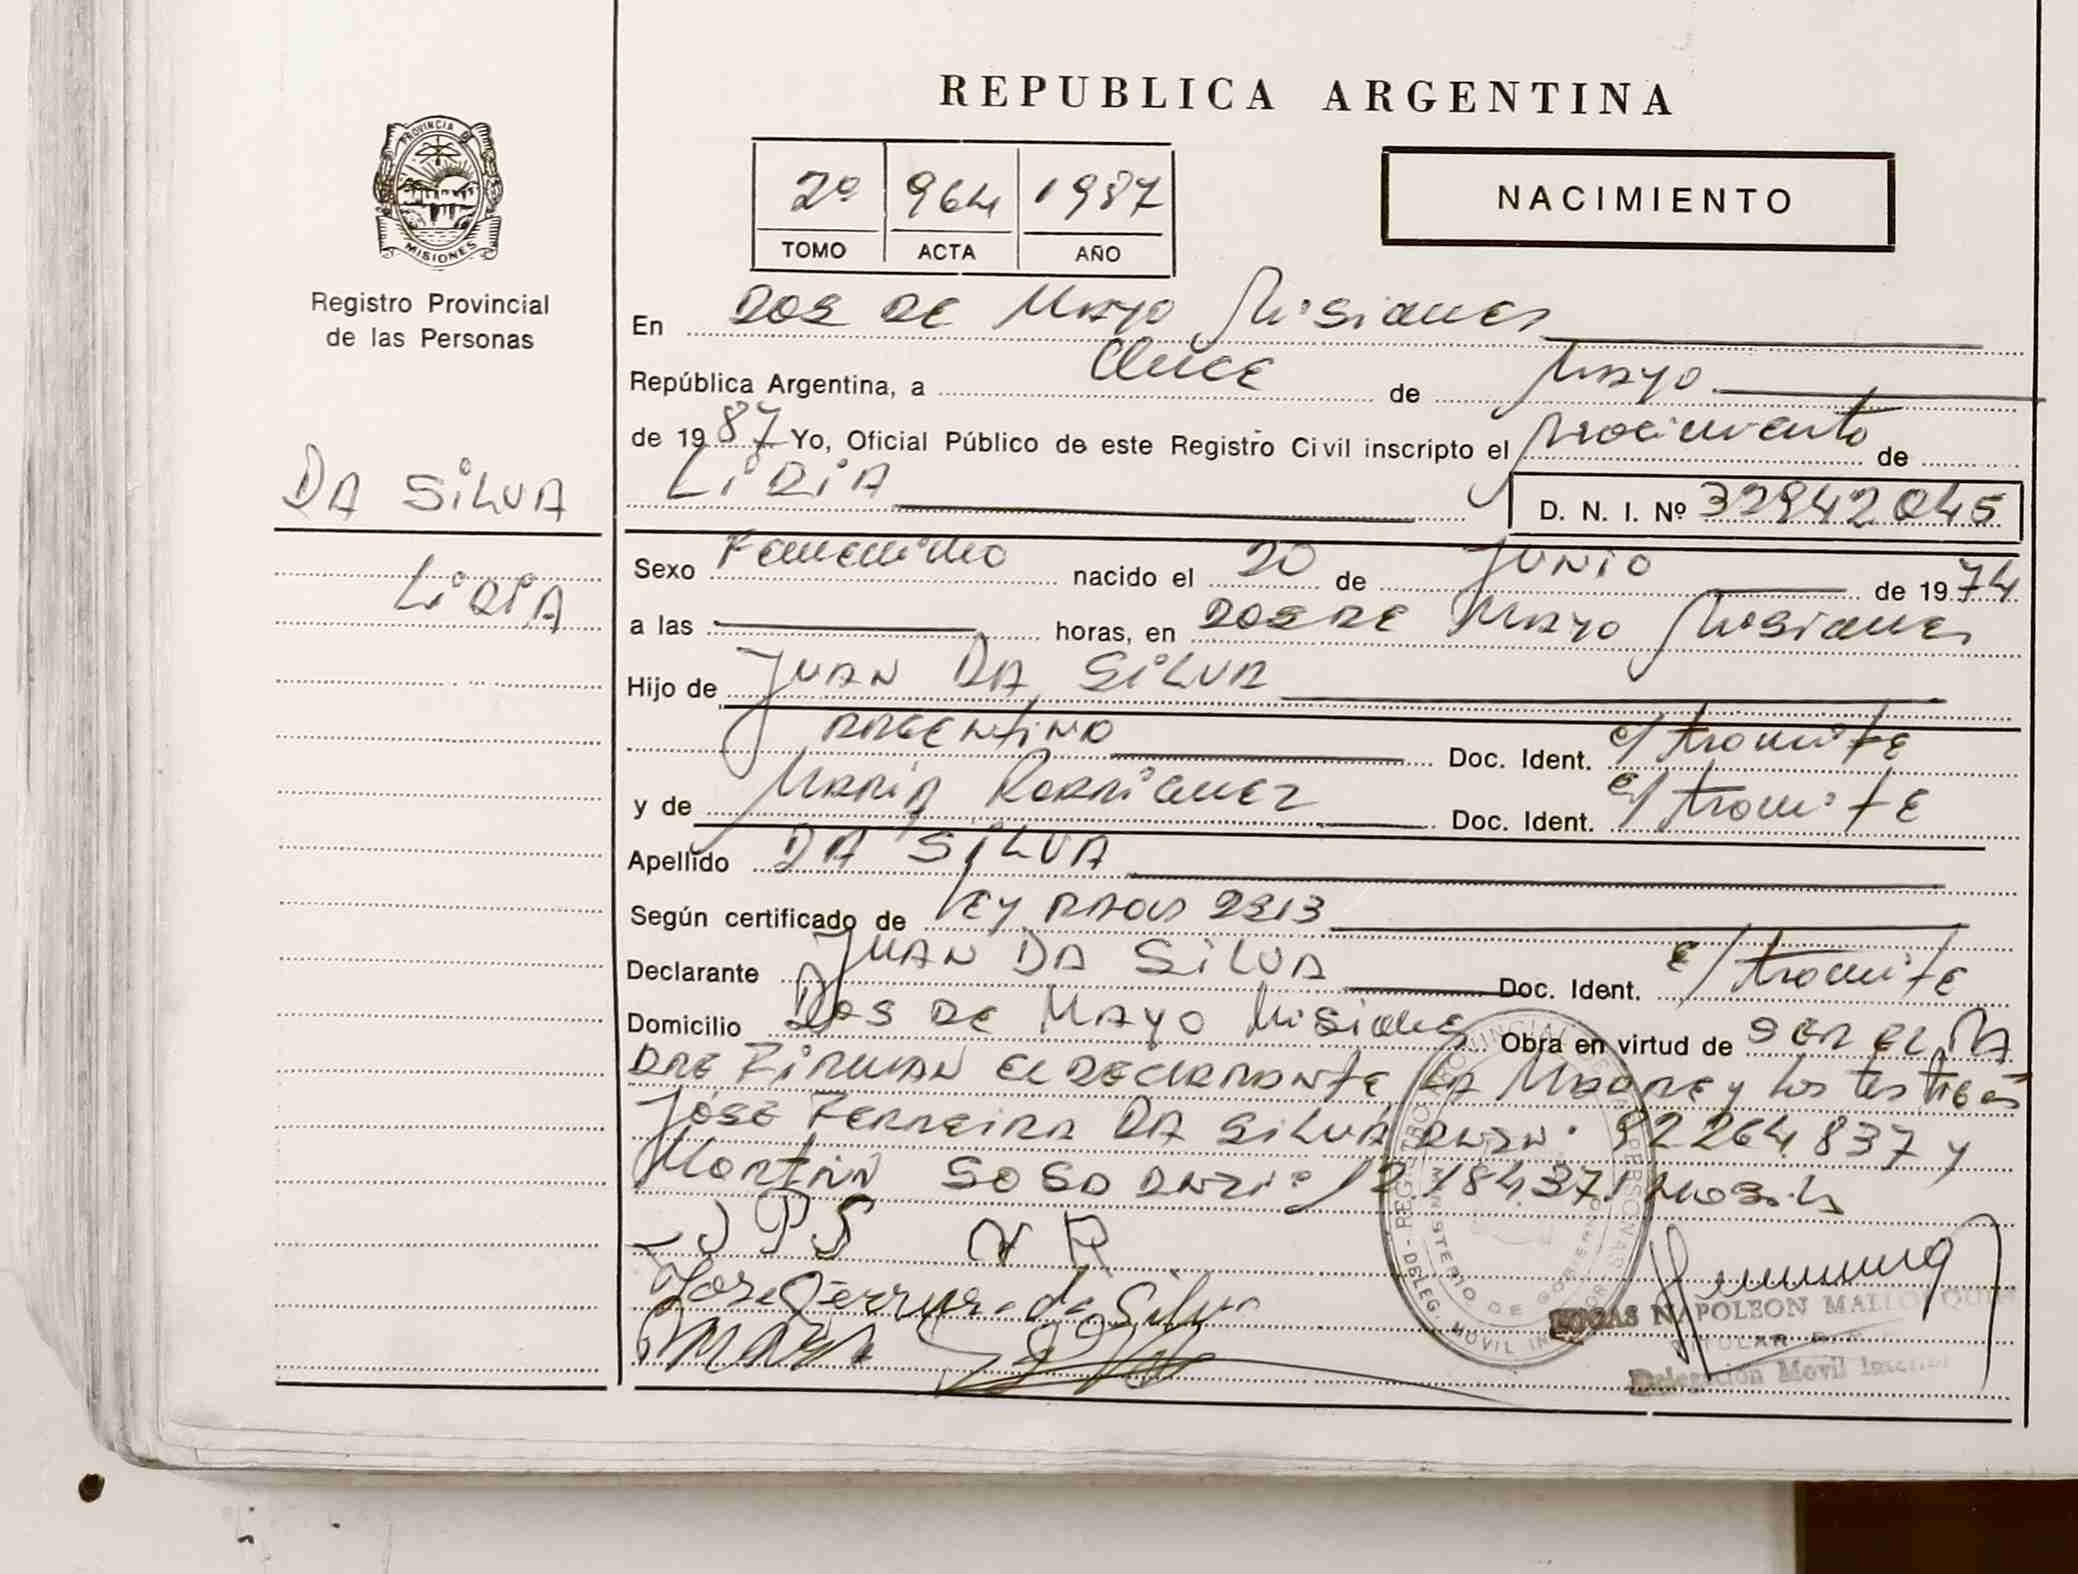 REPUBLICA ARGENTINA
PROVINCIA DE
MISIONES
Registro Provincial
de las Personas
2º 964 1987
TOMO ACTA AÑO
NACIMIENTO
En DOS DE MAYO Misiones
República Argentina, a Once de Mayo
de 1987 Yo, Oficial Público de este Registro Civil inscripto el Nacimiento de
LIRIA D. N. I. Nº 32942045
DA SILVA
LIRIA
Sexo Femenino nacido el 20 de JUNIO de 1974
a las horas, en DOS DE MAYO Misiones
Hijo de JUAN DA SILVA
ARGENTINO Doc. Ident. e/ tramite
y de MARIA RODRIGUEZ Doc. Ident. e/ tramite
Apellido DA SILVA
Según certificado de LEY 2313
Declarante JUAN DA SILVA Doc. Ident. E/ tramite
Domicilio DOS DE MAYO Misiones Obra en virtud de SER EL PA
DRE FIRMAN EL DECLARANTE LA MADRE y LOS TESTIGOS
JOSE FERREIRA DA SILVA DNI Nº 92264837 y
MARTIN SOSA DNI Nº 12184371
JPS R
Jose Ferreira da Silva
REGISTRO PROVINCIAL DE LAS PERSONAS
MINISTERIO DE GOBIERNO
DELEG. MOVIL INTERIOR
NAPOLEON
TITULAR
Delegación Movil Interior